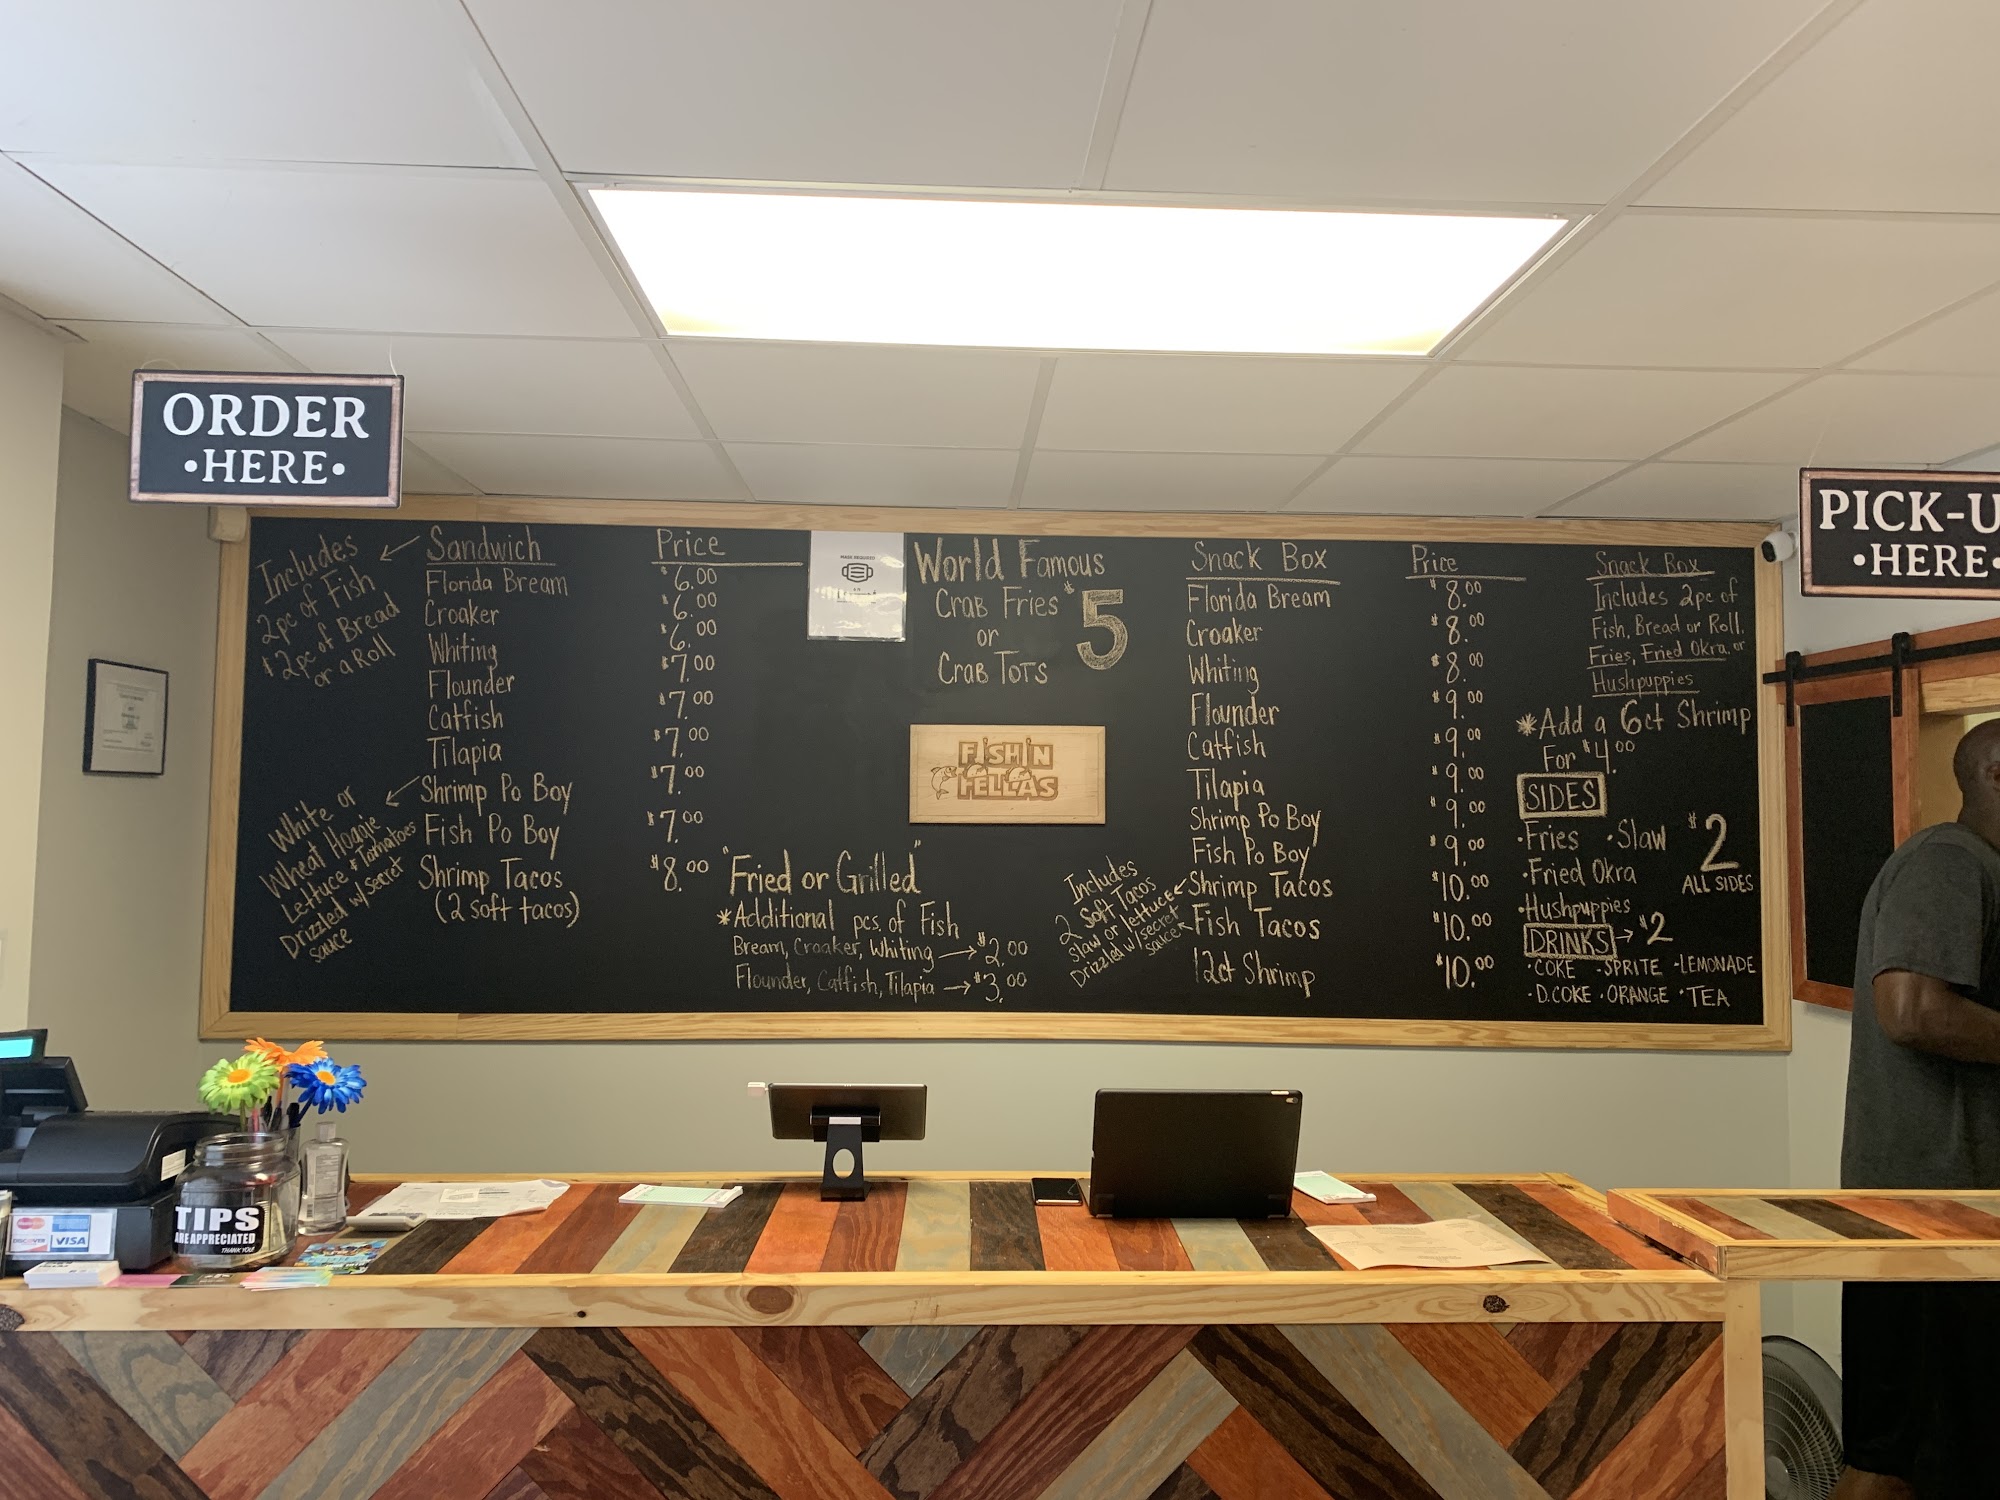 ORDER
•HERE•
PICK-U
•HERE•
Includes
2pc of Fish
& 2pc of Bread
or a Roll
Sandwich Price
Florida Bream $6.00
Croaker $6.00
Whiting $6.00
Flounder $7.00
Catfish $7.00
Tilapia $7.00
Shrimp Po Boy $7.00
Fish Po Boy $7.00
Shrimp Tacos $8.00
(2 soft tacos)
White or
Wheat Hoagie
Lettuce & Tomatoes
Drizzled w/secret
sauce
MASK REQUIRED
World Famous
Crab Fries $5
or
Crab Tots
FISHIN
FELLAS
"Fried or Grilled"
*Additional pcs. of Fish
Bream, Croaker, Whiting → $2.00
Flounder, Catfish, Tilapia → $3.00
Snack Box Price
Florida Bream $8.00
Croaker $8.00
Whiting $8.00
Flounder $9.00
Catfish $9.00
Tilapia $9.00
Shrimp Po Boy $9.00
Fish Po Boy $9.00
Shrimp Tacos $10.00
Fish Tacos $10.00
12ct Shrimp $10.00
Includes
2 Soft Tacos
Slaw or lettuce
Drizzled w/secret
sauce
Snack Box
Includes 2pc of
Fish, Bread or Roll.
Fries, Fried Okra, or
Hushpuppies
*Add a 6ct Shrimp
For $4.00
SIDES
•Fries •Slaw
•Fried Okra
•Hushpuppies
$2
ALL SIDES
DRINKS → $2
•COKE •SPRITE •LEMONADE
•D.COKE •ORANGE •TEA
TIPS
ARE APPRECIATED
THANK YOU!
DISCOVER
VISA